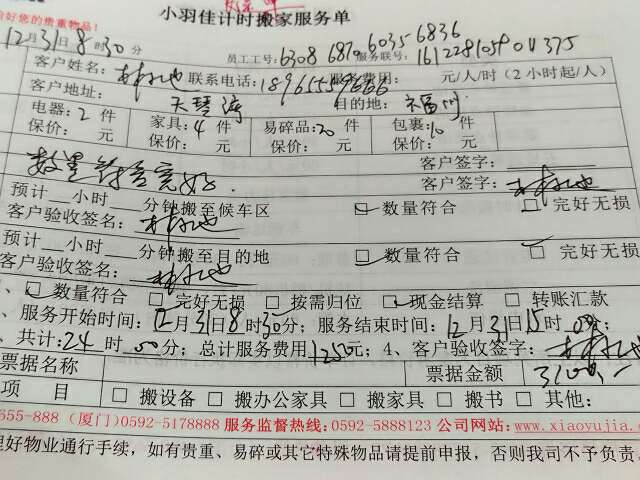 小羽佳计时搬家服务单
您的贵重物品!
12月31日8时30分 员工工号: 6308 6870 6035 6836 服务联号:
客户姓名: 联系电话: 服务费用: 元/人/时(2小时起/人)
客户地址: 天琴湾 目的地: 福
电器: 2件 家具: 4件 易碎品: 20件 包裹: 10件
保价: 元 保价: 元 保价: 元 保价: 元
数量符合完好. 客户签字:
客户签字:
预计__小时__分钟搬至候车区 □数量符合 □完好无损
客户验收签名:
预计__小时__分钟搬至目的地 □数量符合 □完好无损
客户验收签名:
、□数量符合 □完好无损 □按需归位 □现金结算 □转账汇款
、服务开始时间: 12月31日8时30分; 服务结束时间: 12月31日15时00分;
、共计: 24时00分; 总计服务费用1250元; 4、客户验收签字:
票据名称 票据金额 3100.-
项目 □搬设备 □搬办公家具 □搬家具 □搬书 □其他:
555-888 (厦门)0592-5178888 服务监督热线:0592-5888123 公司网站:www.xiaoyujia.c
理好物业通行手续, 如有贵重、易碎或其它特殊物品请提前申报, 否则我司不予负责。